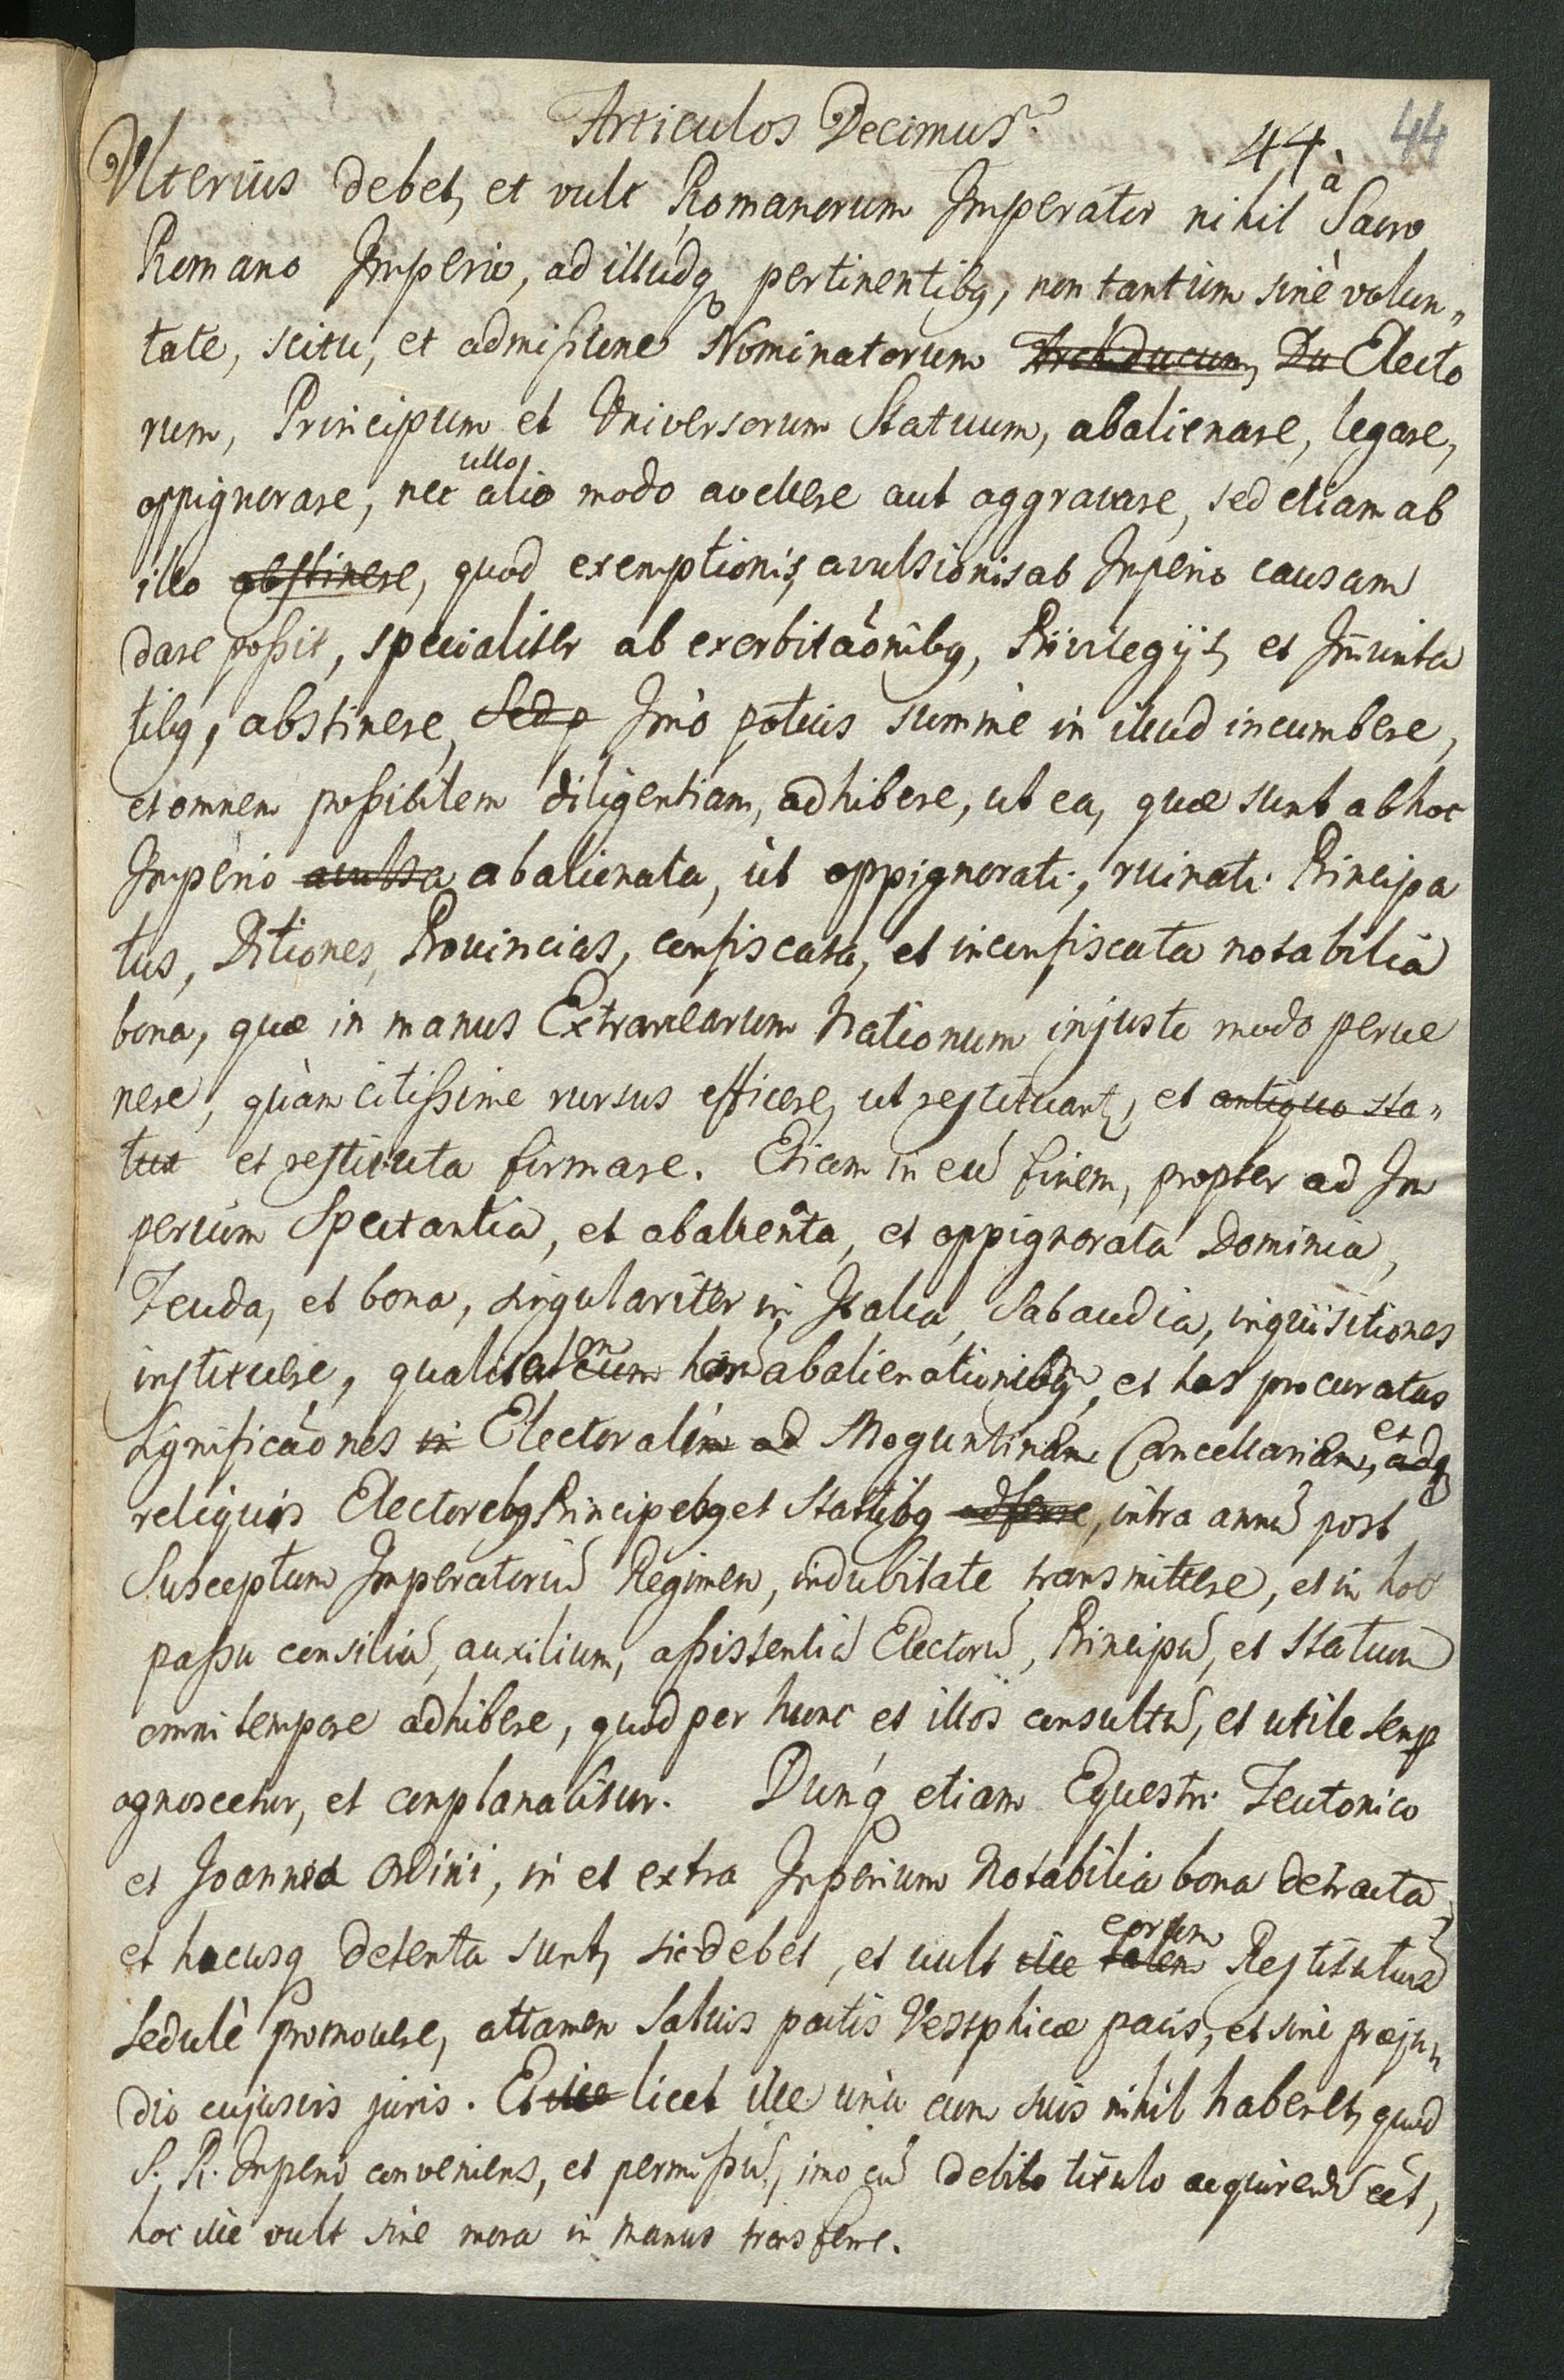 Articulos Decimus.
44. 44
Ulterius debet, et vult Romanorum Imperator nihil à Sacro
Romano Imperio, ad illudq pertinentibq, non tantum sinè volun„
tate, scitu, et admissione Nominatorum Archiducum, Du Electo
rum, Principum et Universorum Statuum, abalienare, legare,
oppignorare, nec ullo alio modo avellere aut aggravare, sed etiam ab
illo abstinere, quod exemptionis, avulsionis ab Imperio causam
dare possit, specialiter ab exorbitaõnibq, Privilegijs, et Im̃unita
tibq, abstinere, Sed p Imò potius summè in illud incumbere,
et omnem possibilem diligentiam, adhibere, ut ea, quæ sunt ab hoc
Imperio avulsa abalienata, ut oppignorati, ruinati Principa
tus, Ditiones, Provincias, confiscata, et inconfiscata notabilia
bona, quæ in manus Extranearum Nationum injusto modo perve
nere, quàm citissime rursus efficere, ut restituant, et antiquo sta„
tui et restituta firmare. Etiam in eũ finem, propter ad Im
perium Spectantia, et abalienata, et oppignorata Dominia,
Feuda, et bona, singulariter in Italia, Sabaudia, inquisitiones
instituere, qualiter cum harũ abalienationibq, et has procuratas
significaõnes in Electorali ad Moguntinam Cancellariam, et adq
reliquis Electorebq Principebq et Statibq adferre, intra annũ post
Susceptum Imperatoriũ Regimen, indubitate transmittere, et in hoc
passu consiliũ, auxilium, assistentiã Electorũ, Principũ, et Statuum
omni tempore adhibere, quod per hunc et illos consultũ, et utile semp
agnoscetur, et complanabitur. Dunq etiam Equestri Teutonico
et Joannea Ordini, in et extra Imperium Notabilia bona detracta,
et hucusq detenta sunt, sic debet, et vult ille talem eorum Restitutionẽ
sedulè promovere, attamen salvis pactis Vestphicæ pacis, et sine præju„
dio cujusvis juris. Et ille licet ille unà cum suis nihil haberet, quod
S. R. Imperio conveniens, et permissũ, imo cũ debito titulo acquirendũ eẽt,
hoc ille vult sine mora in manus transferre.